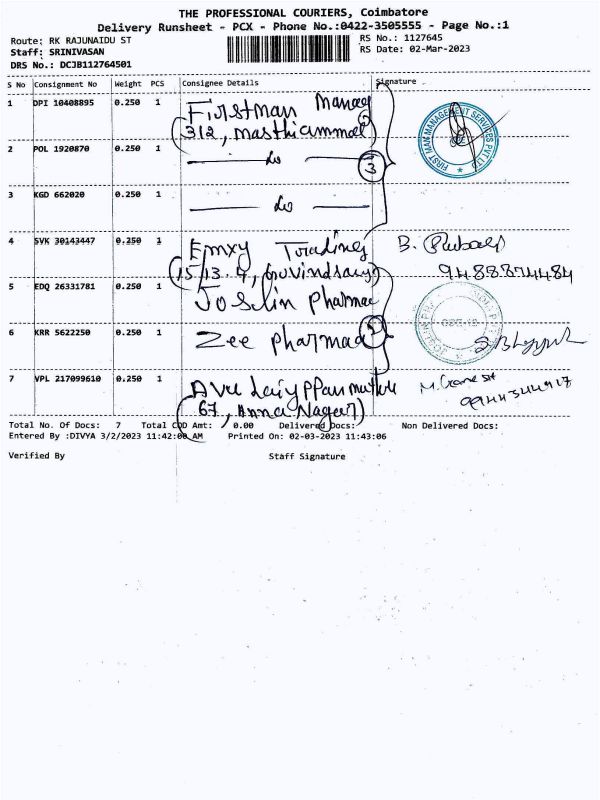 THE PROFESSIONAL COURIERS, Coimbatore
Delivery Runsheet - PCX - Phone No.:0422-3505555 - Page No.:1
Route: RK RAJUNAIDU ST RS No.: 1127645
Staff: SRINIVASAN RS Date: 02-Mar-2023
DRS No.: DCJB112764501
S No Consignment No Weight PCS Consignee Details Signature
1 DPI 10408895 0.250 1 Firstman
312,
FIRST MAN MANAGEMENT SERVICES PVT LTD
2 POL 1920870 0.250 1 do 3
3 KGD 662020 0.250 1 do
4 SVK 30143447 0.250 1 Emxy Trading B.
15/13.4, 9488874484
5 EDQ 26331781 0.250 1 Joslin Pharmac
6 KRR 5622250 0.250 1 Zee Pharmac
7 VPL 217099610 0.250 1 M. Ganesh
67, Anna Nagar 9944344917
Total No. Of Docs: 7 Total COD Amt: 0.00 Delivered Docs: Non Delivered Docs:
Entered By :DIVYA 3/2/2023 11:42:00 AM Printed On: 02-03-2023 11:43:06
Verified By Staff Signature